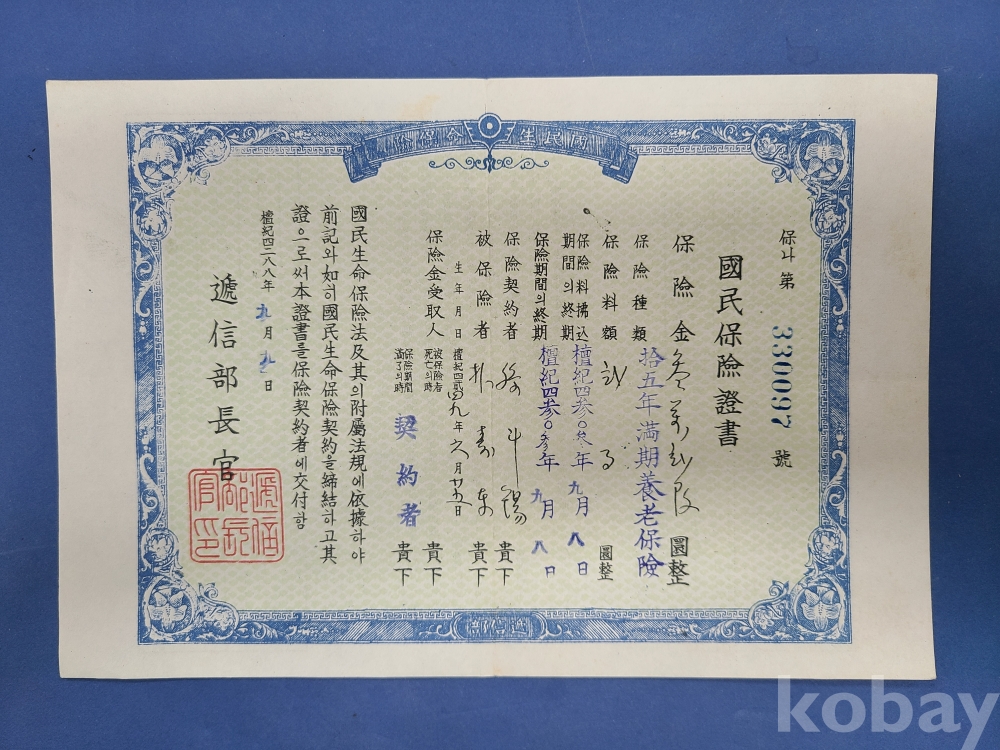 國民生命保險
保나第 330097 號
國民保險證書
保險金 參萬 圜整
保險種類 拾五年滿期養老保險
保險料額 圜整
保險料拂込期間의終期 檀紀四参〇参年九月八日
保險期間의終期 檀紀四参〇参年九月八日
保險契約者 斗錫 貴下
被保險者 朴壽 貴下
生年月日 檀紀四貳四九年 月 日
保險金受取人
被保險者死亡의時 貴下
保險期間滿了의時 契約者 貴下
國民生命保險法及其의附屬法規에依據하야
前記와如히國民生命保險契約을締結하고其
證으로써本證書를保險契約者에交付함
檀紀四二八八年九月九日
遞信部長官
遞信部長官印
遞信部
kobay